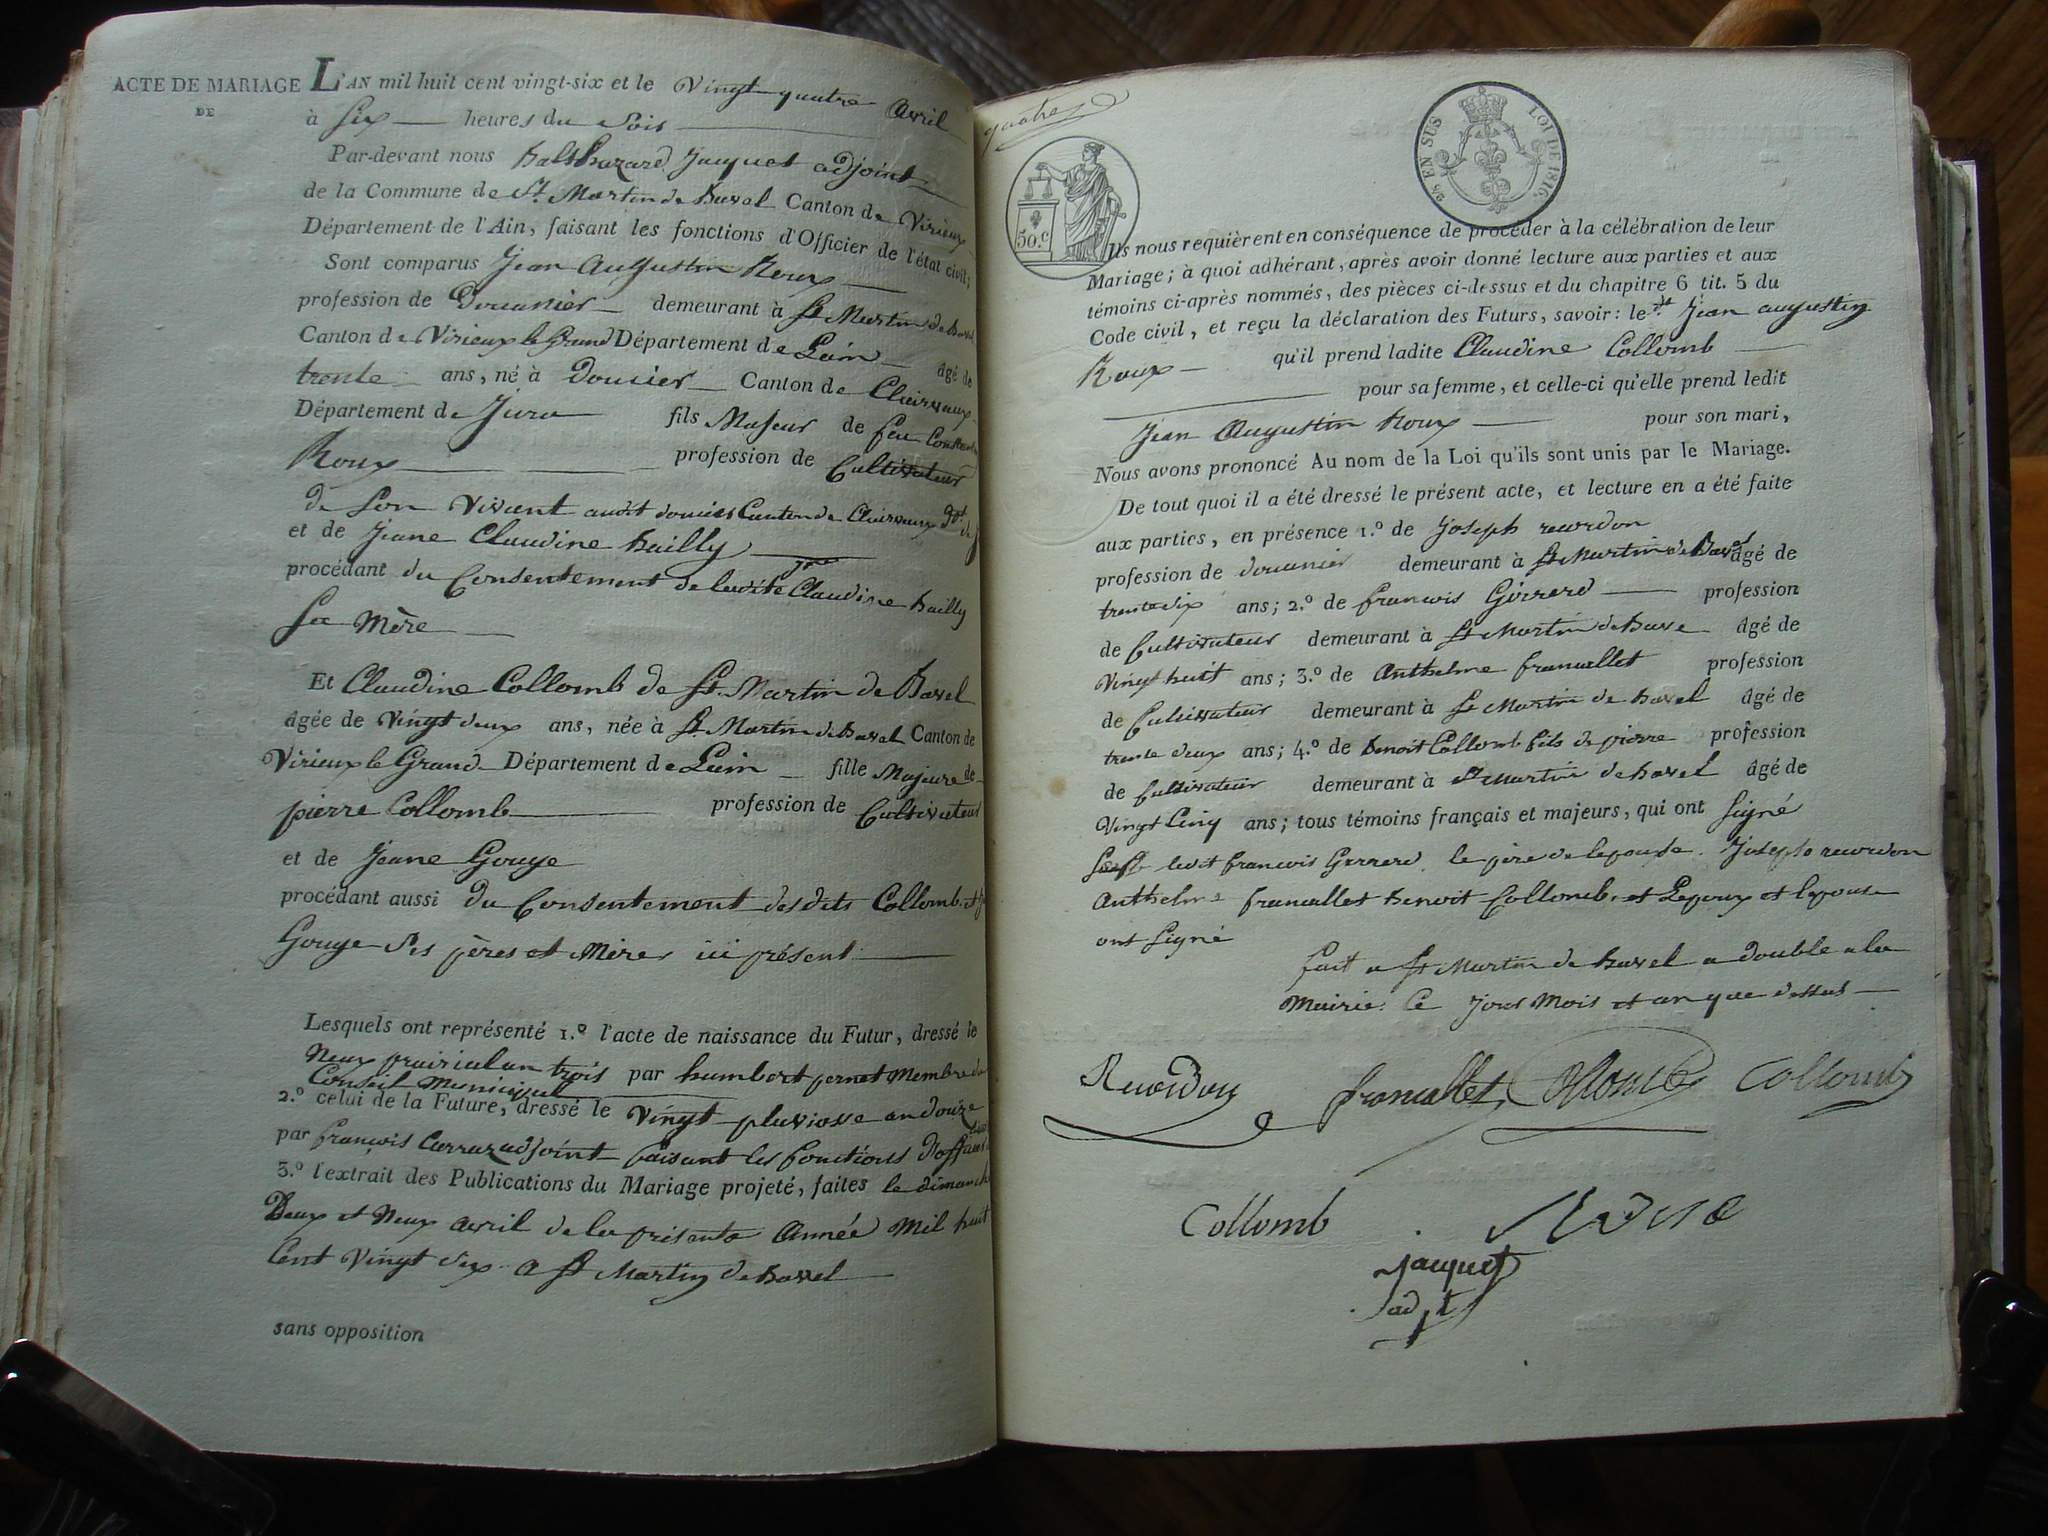 ACTE DE MARIAGE
DE
L'AN mil huit cent vingt-six et le Vingt quatre avril
à Six heures du Soir
Par-devant nous Balthazard Jacquet adjoint
de la Commune de St. Martin de Bavel Canton de Virieux
Département de l'Ain, faisant les fonctions d'Officier de l'état civil;
Sont comparus Jean Augustin Roux
profession de Douanier demeurant à St Martin de Bavel
Canton de Virieux le Grand Département de Lain âgé de
trente ans, né à Doucier Canton de Clairvaux
Département de Jura fils Majeur de feu
Roux profession de Cultivateur
de Son Vivant audit doucier Canton de Clairvaux Dpt. de
et de Jeane Claudine bailly
procédant du Consentement de ladite Jne Claudine bailly
Sa Mère
Et Claudine Collomb de St. Martin de Bavel
âgée de Vingt deux ans, née à St. Martin de Bavel Canton de
Virieux le Grand Département de Lain fille Majeure de
pierre Collomb profession de Cultivateur
et de Jeane Gouge
procédant aussi du Consentement desdits Collomb et
Gouge Ses pères et Mères ici présent
Lesquels ont représenté 1.º l'acte de naissance du Futur, dressé le
Neux prairial an trois par humbert pernet Membre du
Conseil municipal
2.º celui de la Future, dressé le Vingt pluviose an douze
par françois Carraz adjoint faisant les fonctions
3.º l'extrait des Publications du Mariage projeté, faites le dimanche
Deux et Neux avril de la présente Année Mil huit
Cent Vingt Six a St Martin de bavel
sans opposition
quatre
2es EN SUS LOI DE 1816
50.c
Ils nous requièrent en conséquence de procéder à la célébration de leur
Mariage; à quoi adhérant, après avoir donné lecture aux parties et aux
témoins ci-après nommés, des pièces ci-dessus et du chapitre 6 tit. 5 du
Code civil, et reçu la déclaration des Futurs, savoir: le dt Jean augustin
Roux qu'il prend ladite Claudine Collomb
pour sa femme, et celle-ci qu'elle prend ledit
Jean Augustin Roux pour son mari,
Nous avons prononcé Au nom de la Loi qu'ils sont unis par le Mariage.
De tout quoi il a été dressé le présent acte, et lecture en a été faite
aux parties, en présence 1.º de Joseph reverdon
profession de douanier demeurant à St Martin de Bavel âgé de
trente six ans; 2.º de francois Girrerd profession
de Cultivateur demeurant à St Martin de Bave âgé de
Vingt huit ans; 3.º de Anthelme francallet profession
de Cultivateur demeurant à St Martin de bavel âgé de
trente deux ans; 4.º de benoit Collomb fils de pierre profession
de Cultivateur demeurant à St Martin de bavel âgé de
Vingt Cinq ans; tous témoins français et majeurs, qui ont Signé
Sauf ledit francois Girrerd le père de lepouse. Joseph reverdon
Anthelme francallet benoit Collomb et Lepoux et lepouse
ont Signé
fait a St Martin de bavel a double a la
Mairie Ce jour Mois et an que dessus
Reverdon francallet Collomb Collomb
Collomb
Jacquet
adjt